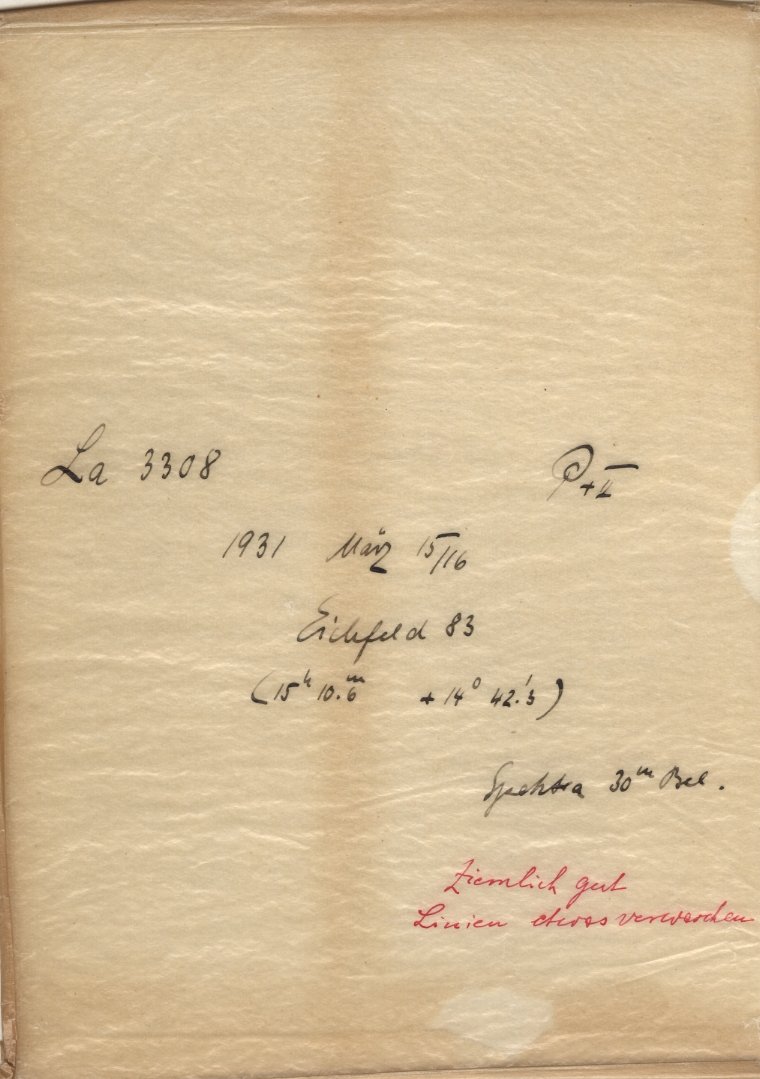 La 3308 P+II
1931 März 15/16
Eichfeld 83
(15ʰ 10.ᵐ6 + 14° 42.'3)
Spektra 30ᵐ Bel.
Ziemlich gut
Linien etwas verwaschen